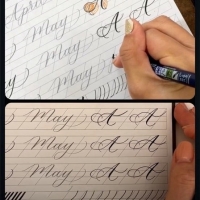 April A
May A A
May A A
May
May A A
May A A
May A A